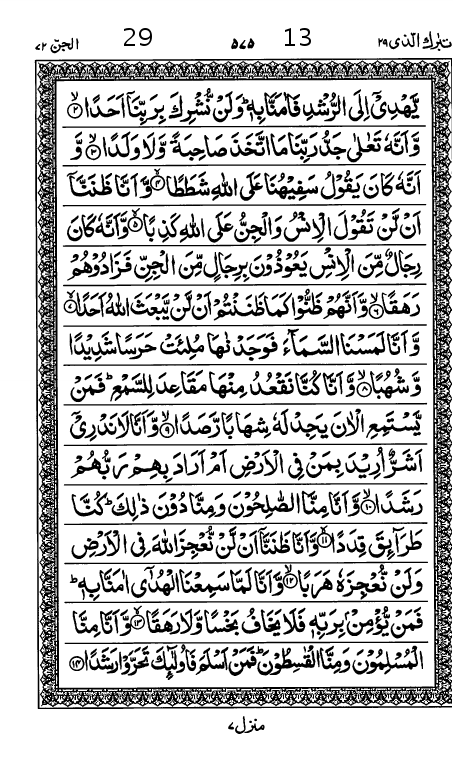 تبٰرك الذی ۲۹ 13 ۵۷۵ 29 الجن ۷۲
يَّهْدِىْۤ اِلَى الرُّشْدِ فَاٰمَنَّا بِهٖ ؕ وَلَنْ نُّشْرِكَ بِرَبِّنَاۤ اَحَدًا ۙ‏﴿۲﴾
وَّاَنَّهٗ تَعٰلٰى جَدُّ رَبِّنَا مَا اتَّخَذَ صَاحِبَةً وَّلَا وَلَدًا ۙ‏﴿۳﴾ وَّ
اَنَّهٗ كَانَ يَقُوْلُ سَفِيْهُنَا عَلَى اللّٰهِ شَطَطًا ۙ‏﴿۴﴾ وَّاَنَّا ظَنَنَّاۤ
اَنْ لَّنْ تَقُوْلَ الْاِنْسُ وَالْجِنُّ عَلَى اللّٰهِ كَذِبًا ۙ‏﴿۵﴾ وَّاَنَّهٗ كَانَ
رِجَالٌ مِّنَ الْاِنْسِ يَعُوْذُوْنَ بِرِجَالٍ مِّنَ الْجِنِّ فَزَادُوْهُمْ
رَهَقًا ۙ‏﴿۶﴾ وَّاَنَّهُمْ ظَنُّوْا كَمَا ظَنَنْتُمْ اَنْ لَّنْ يَّبْعَثَ اللّٰهُ اَحَدًا ۙ‏﴿۷﴾
وَّاَنَّا لَمَسْنَا السَّمَآءَ فَوَجَدْنٰهَا مُلِئَتْ حَرَسًا شَدِيْدًا
وَّشُهُبًا ۙ‏﴿۸﴾ وَّاَنَّا كُنَّا نَقْعُدُ مِنْهَا مَقَاعِدَ لِلسَّمْعِ ؕ فَمَنْ
يَّسْتَمِعِ الْاٰنَ يَجِدْ لَهٗ شِهَابًا رَّصَدًا ۙ‏﴿۹﴾ وَّاَنَّا لَا نَدْرِىْۤ
اَشَرٌّ اُرِيْدَ بِمَنْ فِى الْاَرْضِ اَمْ اَرَادَ بِهِمْ رَبُّهُمْ
رَشَدًا ۙ‏﴿۱۰﴾ وَّاَنَّا مِنَّا الصّٰلِحُوْنَ وَمِنَّا دُوْنَ ذٰلِكَ ؕ كُنَّا
طَرَآٮِٕقَ قِدَدًا ۙ‏﴿۱۱﴾ وَّاَنَّا ظَنَنَّاۤ اَنْ لَّنْ نُّعْجِزَ اللّٰهَ فِى الْاَرْضِ
وَلَنْ نُّعْجِزَهٗ هَرَبًا ۙ‏﴿۱۲﴾ وَّاَنَّا لَمَّا سَمِعْنَا الْهُدٰٓى اٰمَنَّا بِهٖ ؕ
فَمَنْ يُّؤْمِنْۢ بِرَبِّهٖ فَلَا يَخَافُ بَخْسًا وَّلَا رَهَقًا ۙ‏﴿۱۳﴾ وَّاَنَّا مِنَّا
الْمُسْلِمُوْنَ وَمِنَّا الْقٰسِطُوْنَ ؕ فَمَنْ اَسْلَمَ فَاُولٰٓٮِٕكَ تَحَرَّوْا رَشَدًا ‏﴿۱۴﴾
منزل ۷